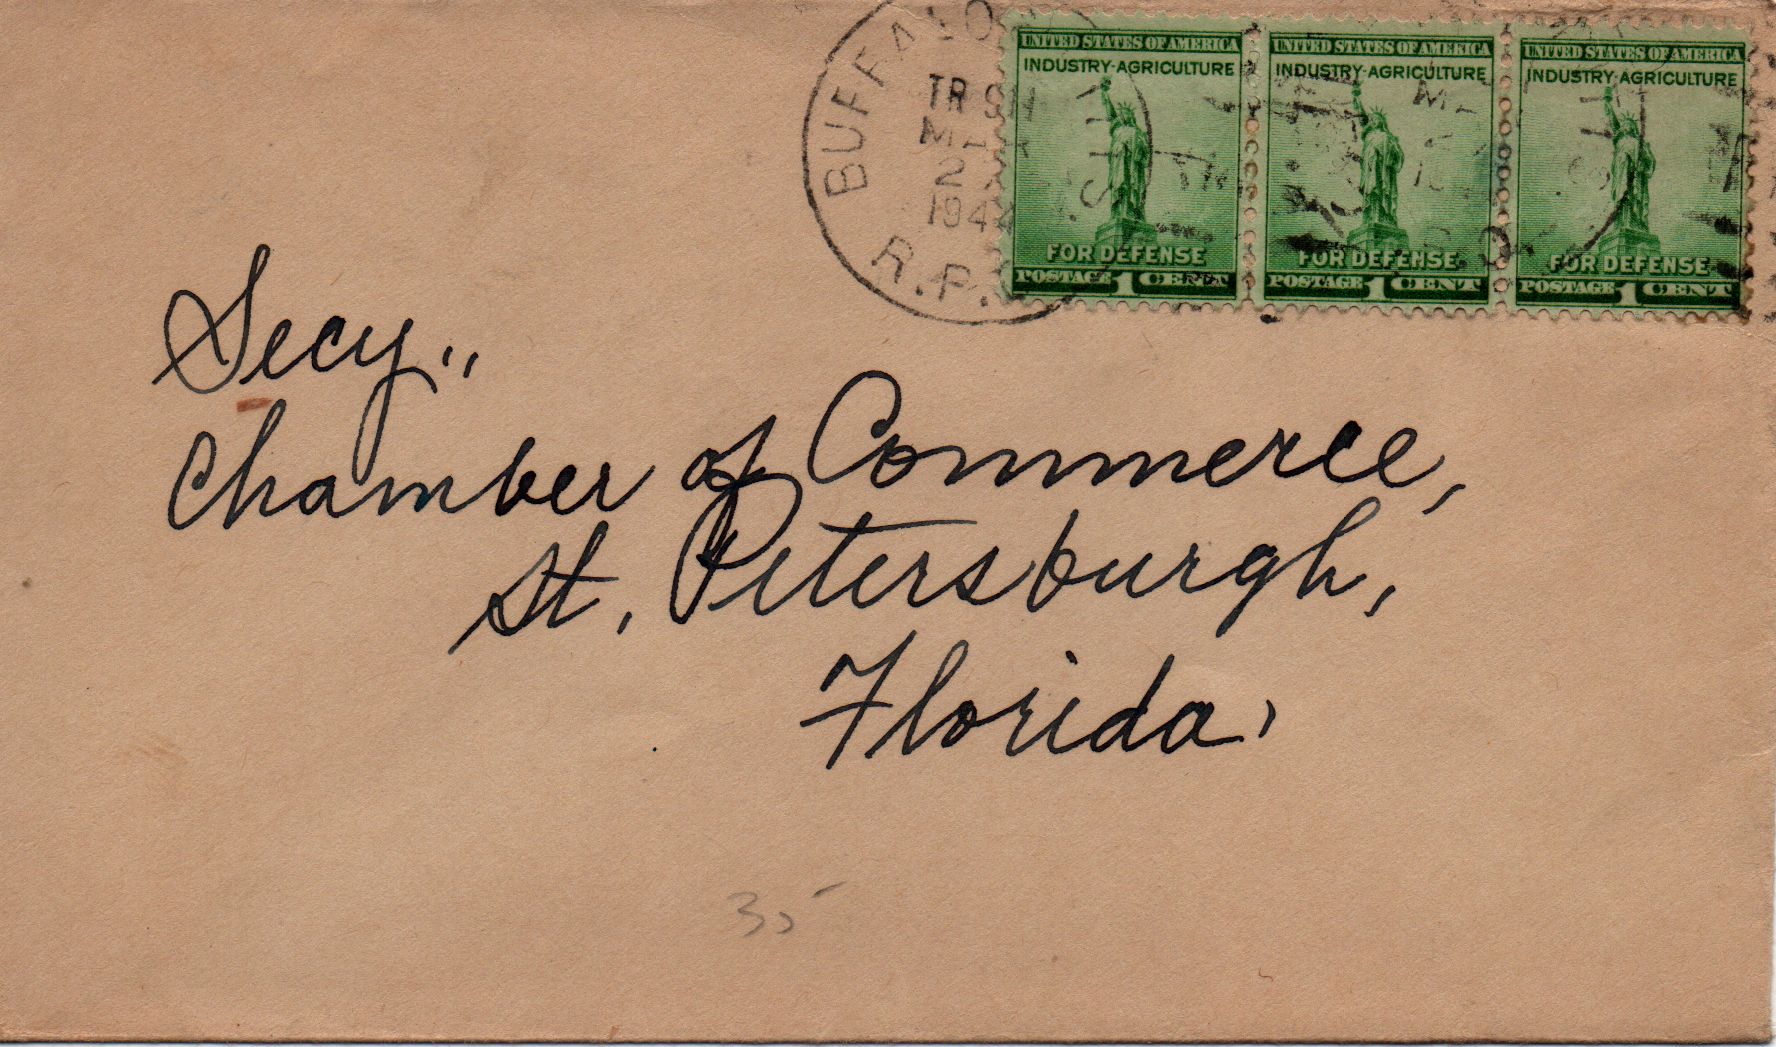 BUFFALO
TR 9
2
1944
R.P.
UNITED STATES OF AMERICA
INDUSTRY-AGRICULTURE
FOR DEFENSE
POSTAGE 1 CENT
UNITED STATES OF AMERICA
INDUSTRY-AGRICULTURE
FOR DEFENSE
POSTAGE 1 CENT
UNITED STATES OF AMERICA
INDUSTRY-AGRICULTURE
FOR DEFENSE
POSTAGE 1 CENT
Secy.,
Chamber of Commerce,
St. Petersburgh,
Florida,
35